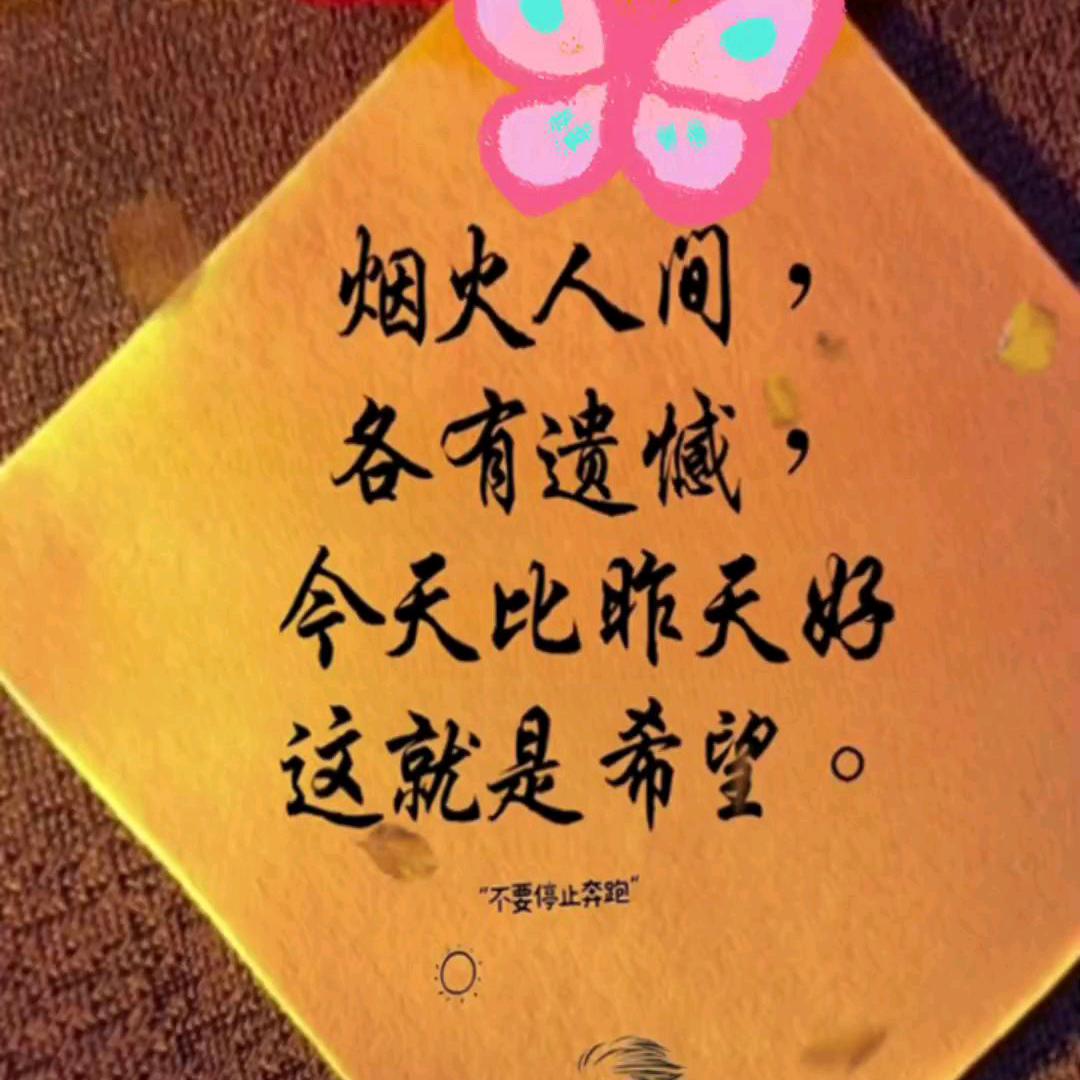 烟火人间，
各有遗憾，
今天比昨天好
这就是希望。
"不要停止奔跑"